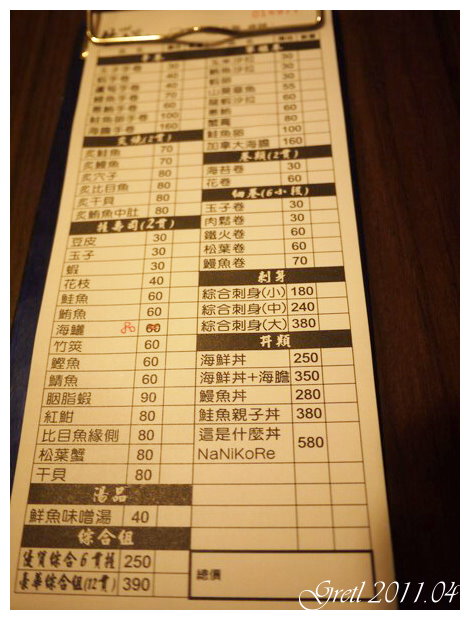 手卷
玉子手卷 30
蝦手卷 40
蘆筍手卷 40
鰻魚手卷 70
鮭魚卵手卷 100
海膽手卷 160
炙燒(2貫)
炙鮭魚 70
炙鰻魚 70
炙穴子 80
炙比目魚 80
炙干貝 80
炙鮪魚中肚 80
握壽司(2貫)
豆皮 30
玉子 30
蝦 30
花枝 40
鮭魚 60
鮪魚 60
海鱺 60
竹筴 60
鰹魚 60
鯖魚 60
胭脂蝦 90
紅魽 80
比目魚緣側 80
松葉蟹 80
干貝 80
湯品
鮮魚味噌湯 40
綜合組
優質綜合6貫握 250
豪華綜合組(12貫) 390
軍艦卷
玉米沙拉 30
鮪魚沙拉 30
蝦卵 30
山藥章魚 55
龍蝦沙拉 60
蔥鮪 60
蟹膏 60
鮭魚卵 100
加拿大海膽 160
卷類(2貫)
海苔卷 30
花卷 60
細卷(6小段)
玉子卷 30
肉鬆卷 30
鐵火卷 60
松葉卷 60
鰻魚卷 70
刺身
綜合刺身(小) 180
綜合刺身(中) 240
綜合刺身(大) 380
丼類
海鮮丼 250
海鮮丼+海膽 350
鰻魚丼 280
鮭魚親子丼 380
這是什麼丼 580
NaNiKoRe
總價
Gretl 2011.04